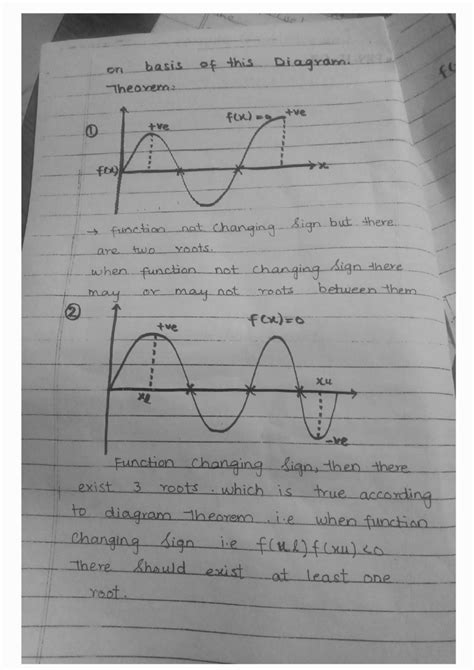 on basis of this Diagram.
Theorem:
①
+ve
f(x)=0
+ve
f(x)
x
→ function not changing sign but there
are two roots.
when function not changing sign there
may or may not roots between them
②
+ve
f(x)=0
xl
xu
-ve
Function Changing sign, then there
exist 3 roots. which is true according
to diagram Theorem. i.e when function
changing sign i.e f(xl)f(xu)<0
There should exist at least one
root.